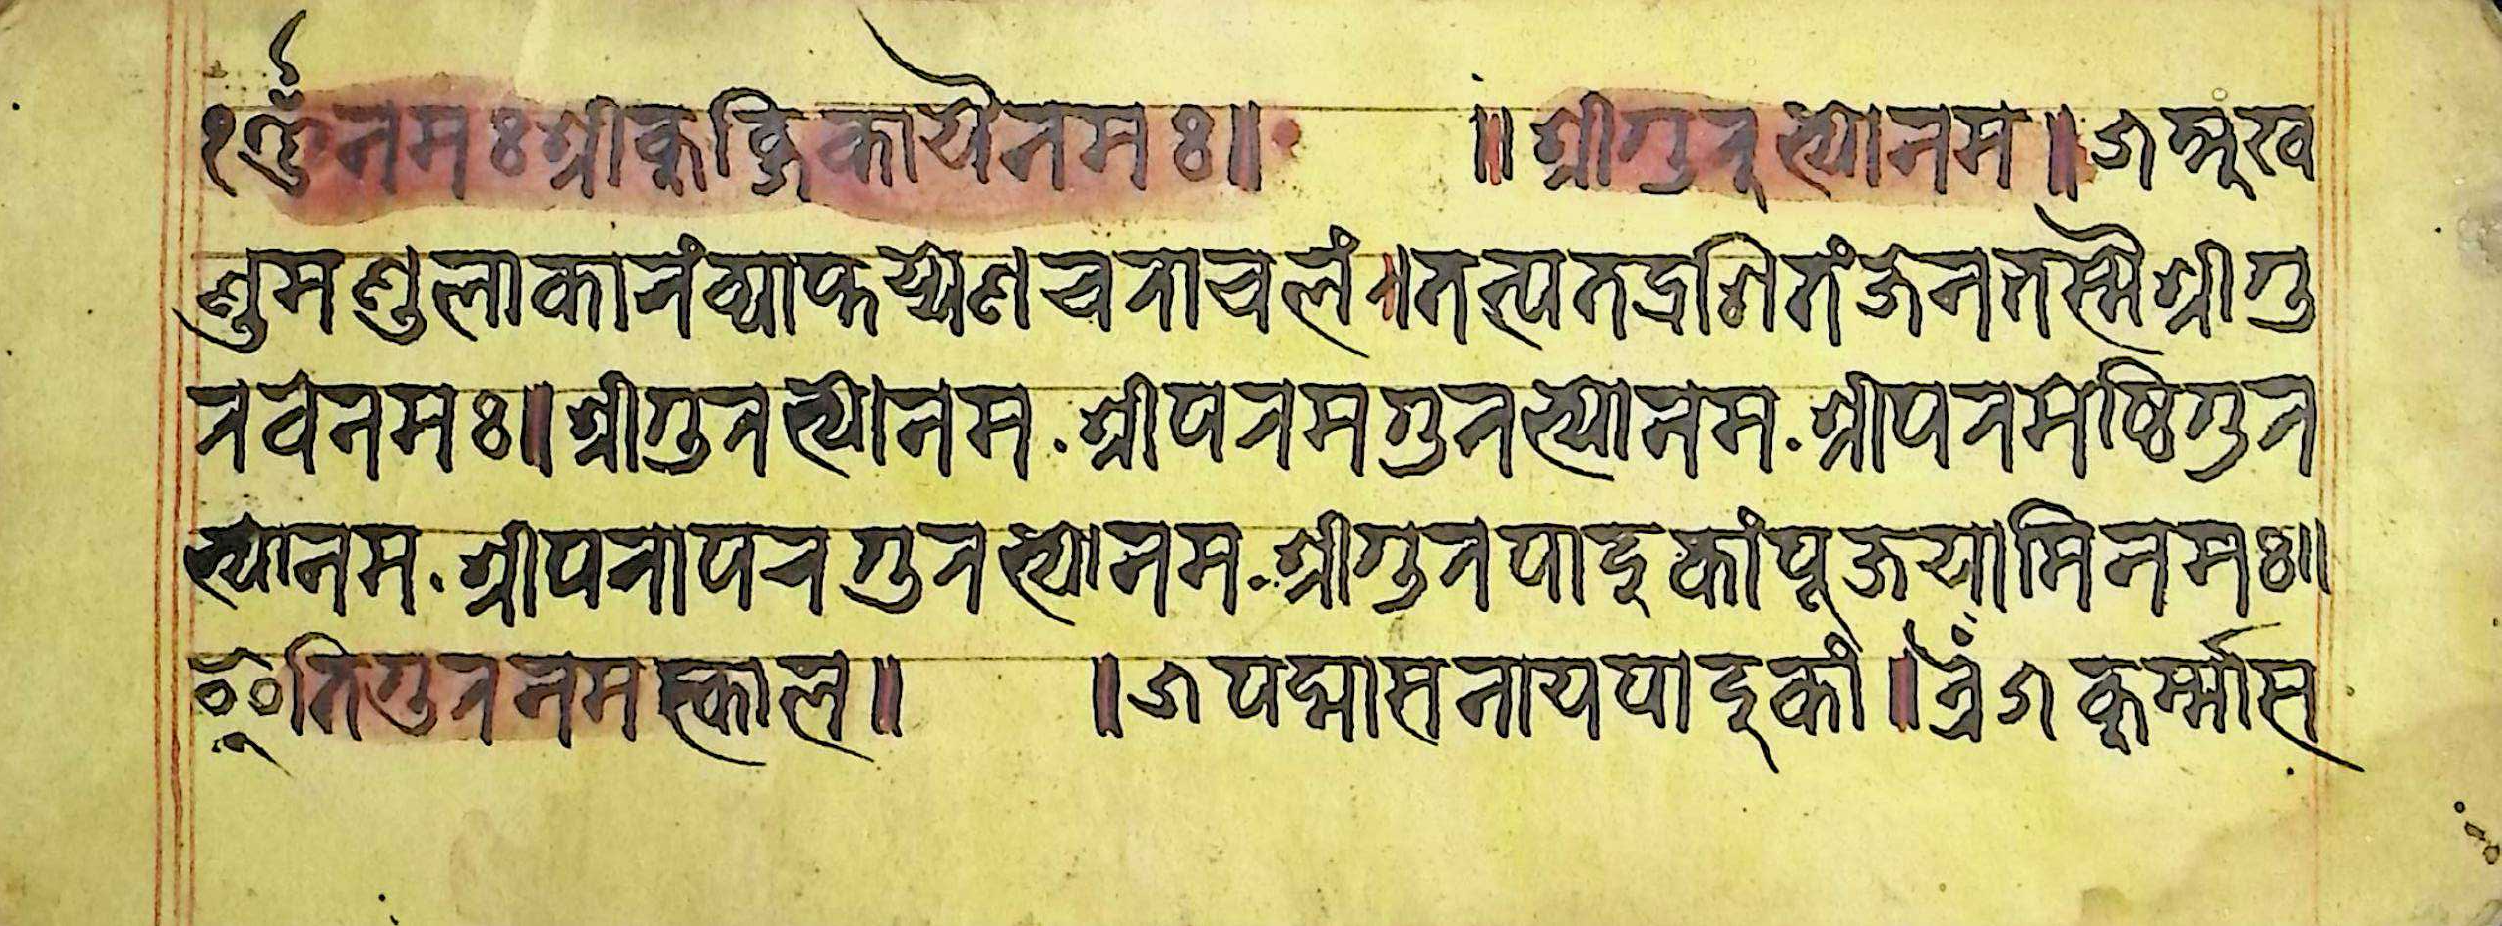 १ ॐ नमः श्रीकुब्जिकायै नमः॥ ॥ श्रीगुरुभ्यो नम॥ अखं
ण्डमण्डलाकारंव्याप्तय्येणचराचलं।तत्पतद्रशितंजेनतस्मैश्रीगु
रवेनमः॥श्रीगुरभ्योनम.श्रीपरमगुरभ्योनम.श्रीपरमेष्ठिगुर
भ्योनम.श्रीपरापरगुरभ्योनम.श्रीगुरपादुकांपूजयामिनमः॥
इतिगुरनमस्काल॥ ॥ पद्मासनायपादुकां॥ कूर्म्मास